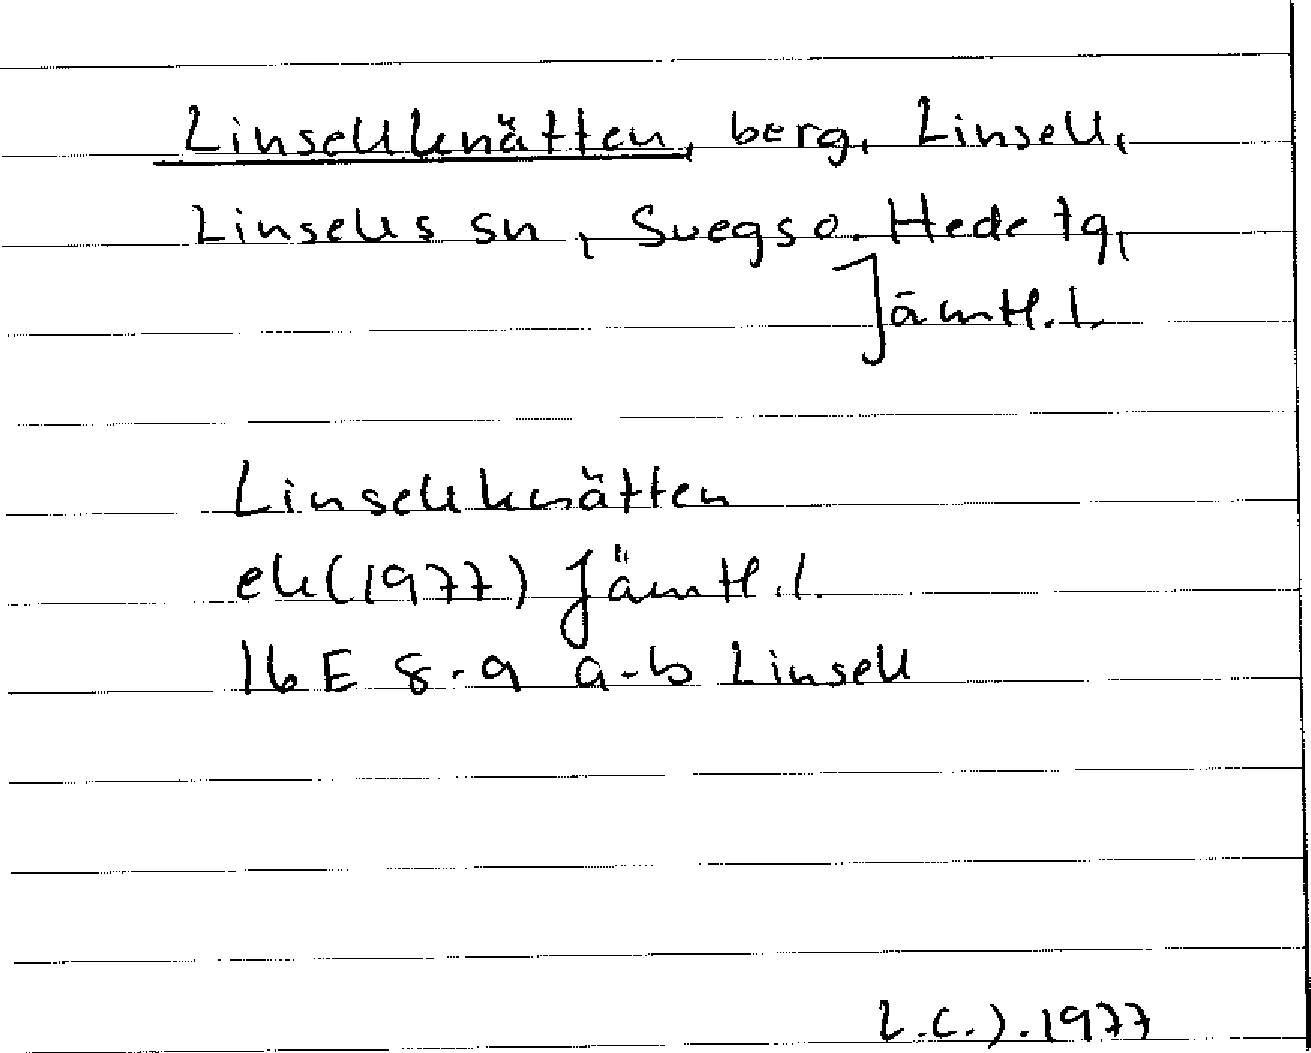 Linsellknätten, berg, Linsell,
Linsells sn, Svegs o. Hede tg,
Jämtl. l.
Linsellknätten
ek (1977) Jämtl. l.
16 E 8-9 a-b Linsell
1977